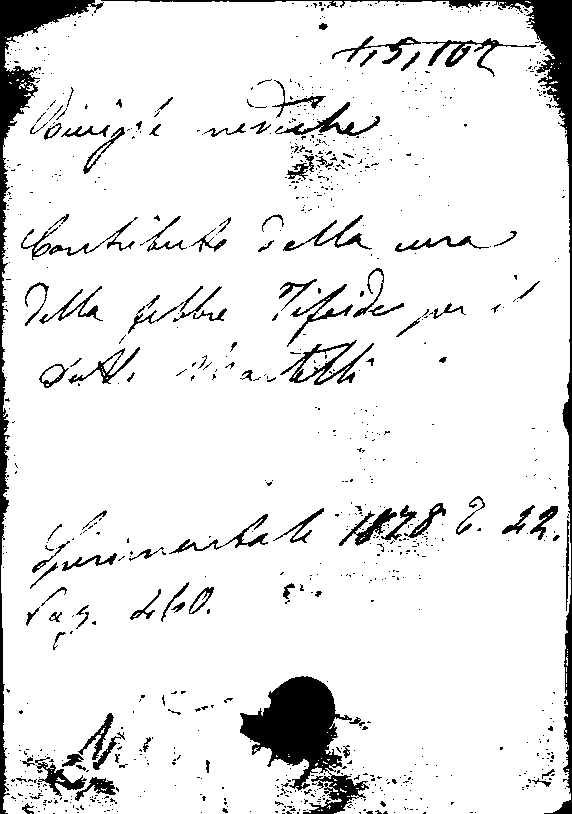 4,5,102
mediche
Contributo della cura
della febbre Tifoide per il
Dott. Martelli
Sperimentale 1878 T. 22.
Pag. 460.